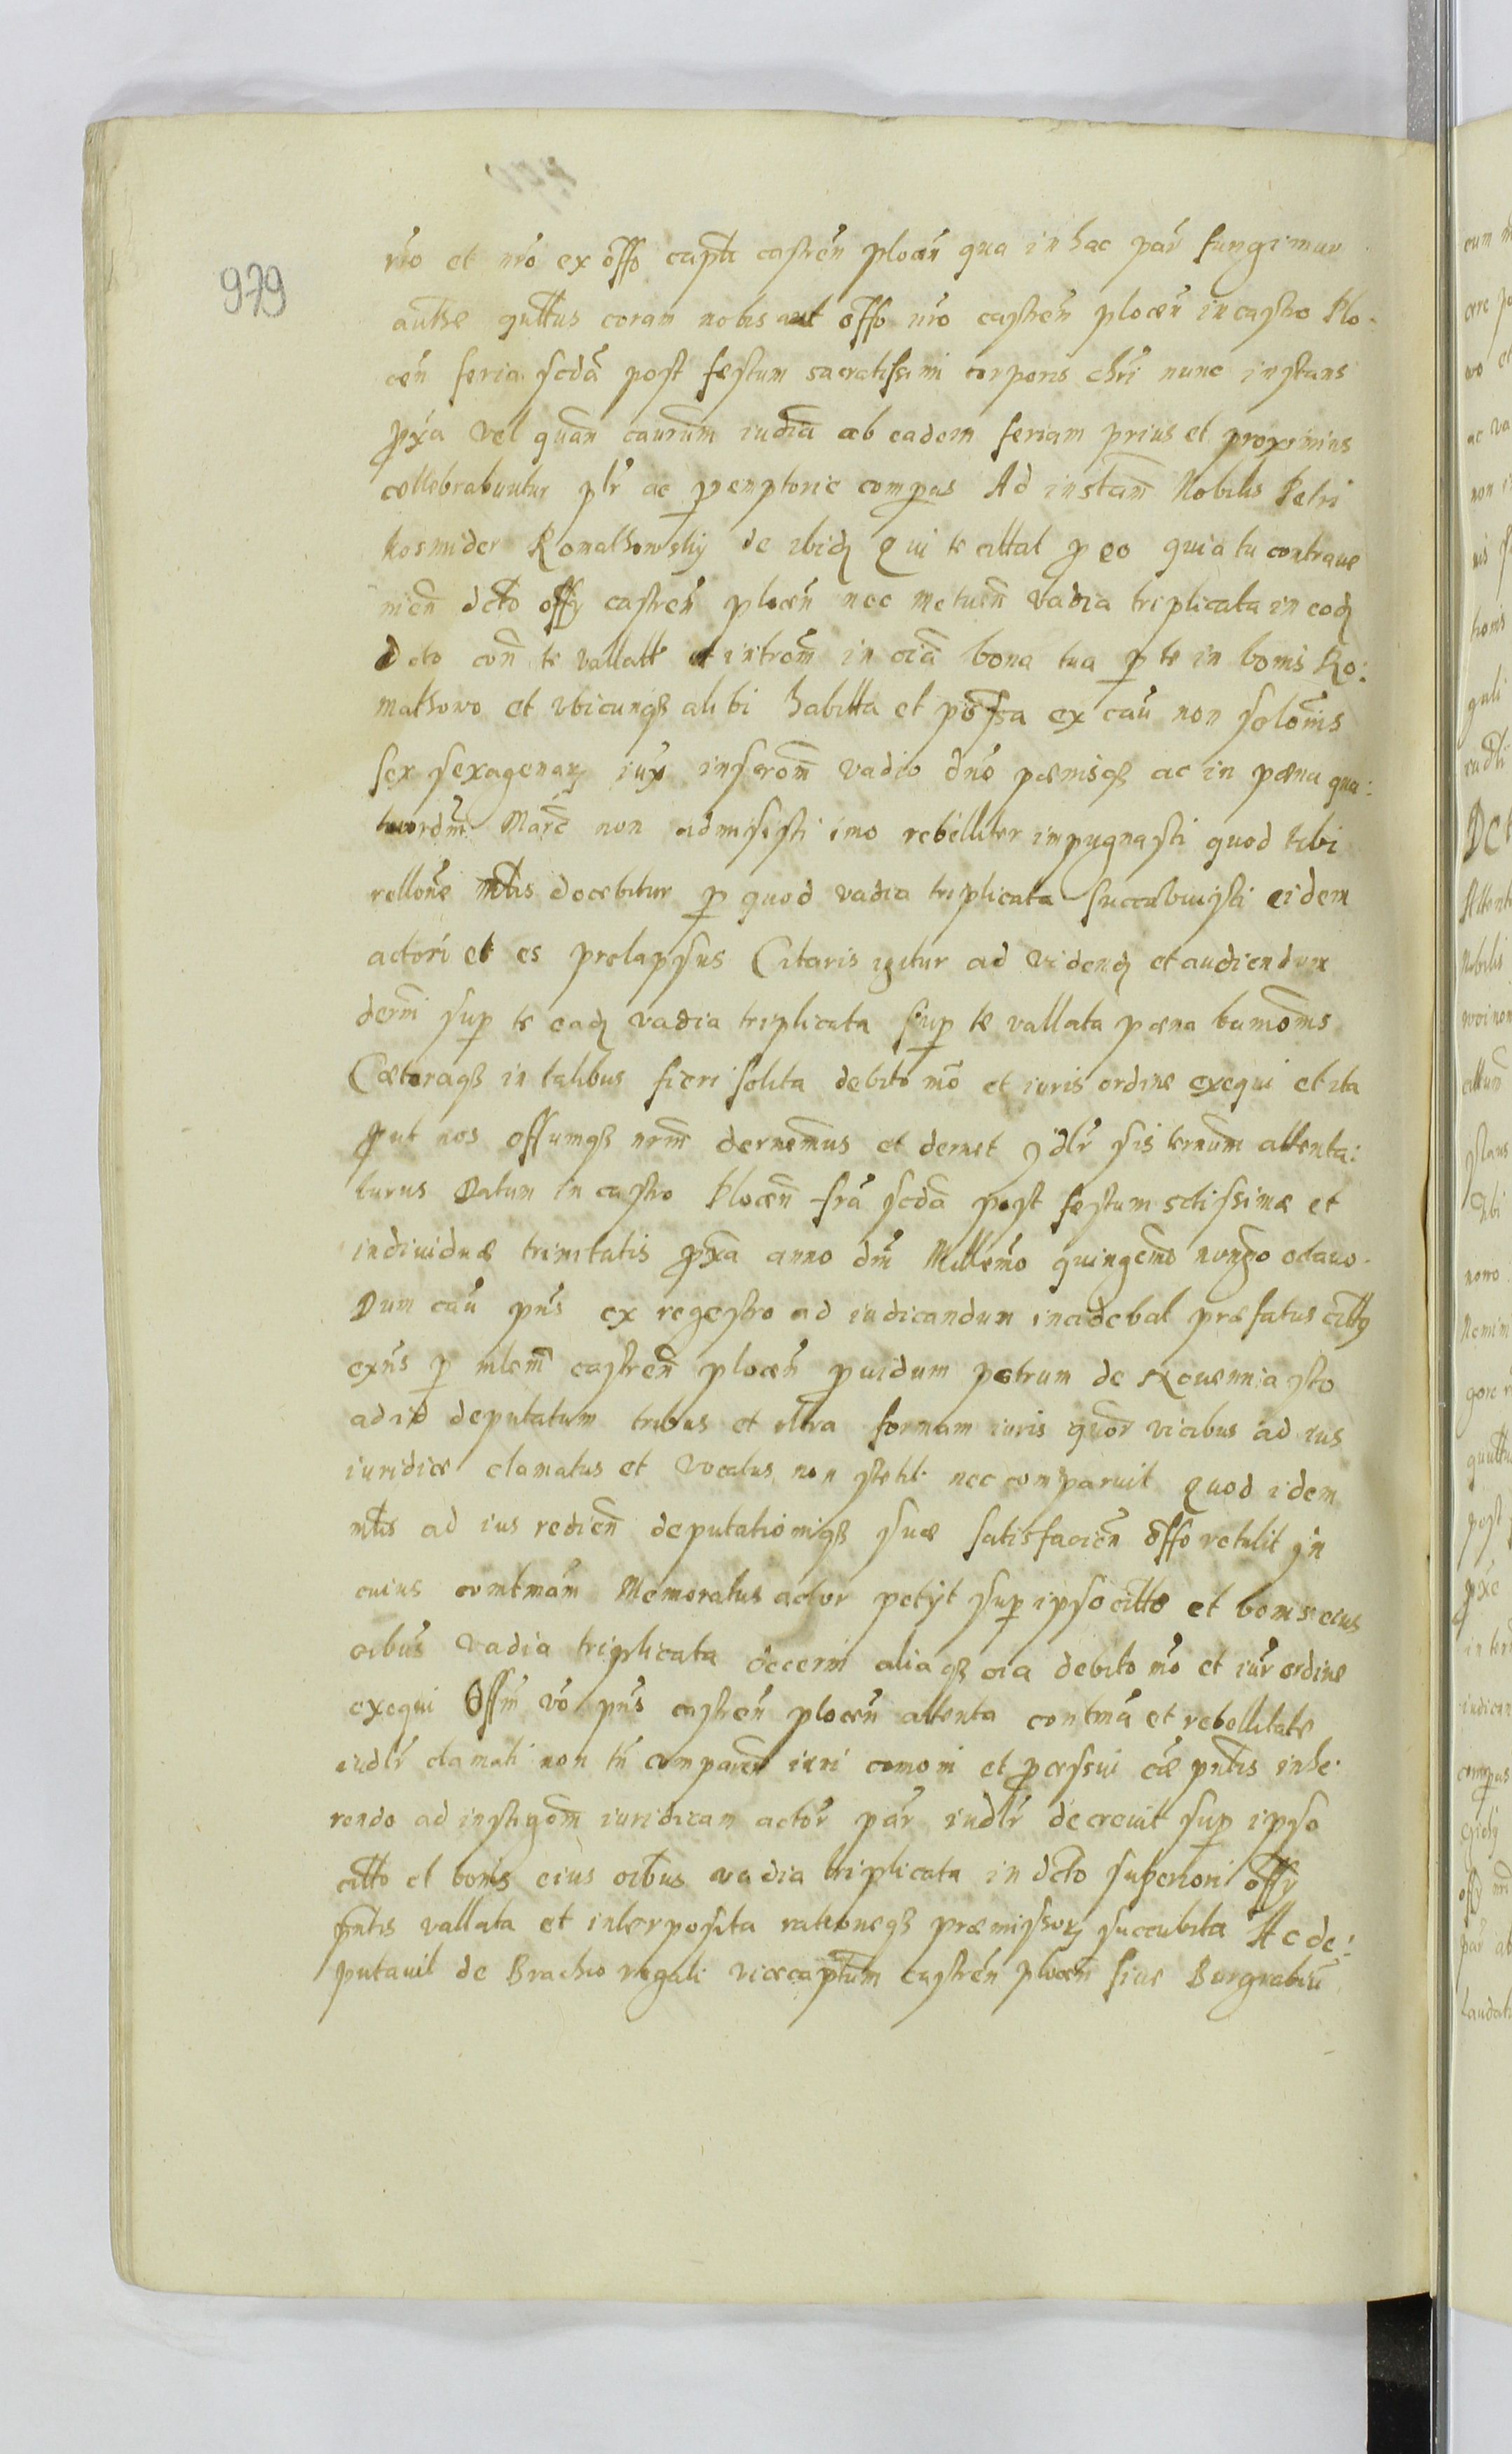 979
nr̃o et nr̃o ex offo capti castreñ ploceñ qua in hac par̃ fungimur
authe quttus coram nobis aut offo nr̃o castreñ ploceñ in castro Plo-
ceñ feria scdã post festum sacratissimi corporis chri nunc instans
pxã vel quañ caurum iudicia ab eadem feriam prius et proximius
cellebrabuntur plr̃ ac peremptorie compas Ad instam̃ Nobilis Petri
Kosmider Romathowskÿ de ibidq Qui te cittat p eo quia tu contraue
nieñ dcto offy castreñ ploceñ nec metueñ vadia triplicata in eodq
dcto coñ te vallatt et introm̃ in oia bona tua p te in bonis Ro:
mathowo et vbicunqz alibi habitta et possa ex caũ non solonis
sex sexagenarq iuxa inscrom̃ vadio dño pœnisqz ac in pœna qua:
tuordm̃ Marc̃ non admisisti imo rebelliter impugnasti quod tibi
rellone mtis docebitur p quod vadia triplicata succubuisti eidem
actori et es prolapsus Citaris igitur ad videndq et audiendum
derni sup te eadq vadia triplicata sup te vallata pœna banionis
Cæteraqz in talibus fieri solita debito mõ et iuris ordine exequi et ita
put nos offumqz nrm̃ dernemus et dernet jdlr̃ sis ternum attenta:
turus Datum in castro Ploceñ frã scdã post festum sctissimæ et
indiuiduæ trinitatis pxa anno dm̃ Millemo quingemo nongo octauo.
Dum caũ pñs ex regestro ad iudicandum incidebat præfatus citt9
exñs p mlem̃ castreñ ploceñ puidum petrum de
ad id deputatum tribus et ultra formam iuris quor̃ vicibus ad ius
iuridice clamatus et vocatus non stetit nec comparuit Quod idem
mtis ad ius redieñ deputationiqz suæ satisfacieñ offo retulit jn
cuius contmãm Memoratus actor petijt sup ipso citto et bonis eius
oibus vadia triplicata decerni aliaqz oia debito mõ et iur̃ ordine
exequi Offm̃ võ pñs castreñ ploceñ attenta contmã et rebellitate
iudlr̃ clamati non tñ compareñ iuri comoni et pcessui cæ pntis inhe:
rendo ad instigom̃ iuridicam actor̃ par̃ iudlr̃ decreuit sup ipso
citto et bonis eius oibus vadia triplicata in dcto superiori offy
pntis vallata et interposita rationeqz præmissorq succubita Ac de:
putauit de Brachio regali vicecaptum castreñ ploceñ siue Burgrabiũ